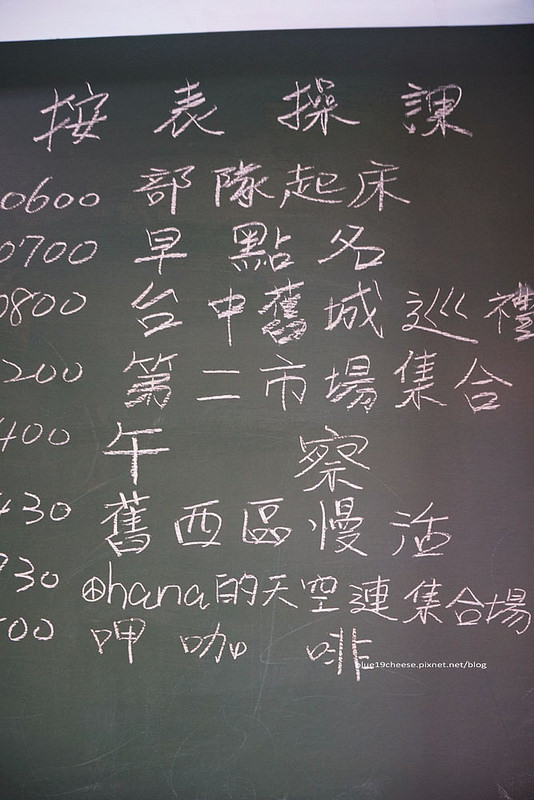 按表操課
0600 部隊起床
0700 早點名
0800 台中舊城巡禮
200 第二市場集合
400 午察
430 舊西區慢活
930 Ohana的天空連集合場
00 呷咖啡
blue19cheese.pixnet.net/blog